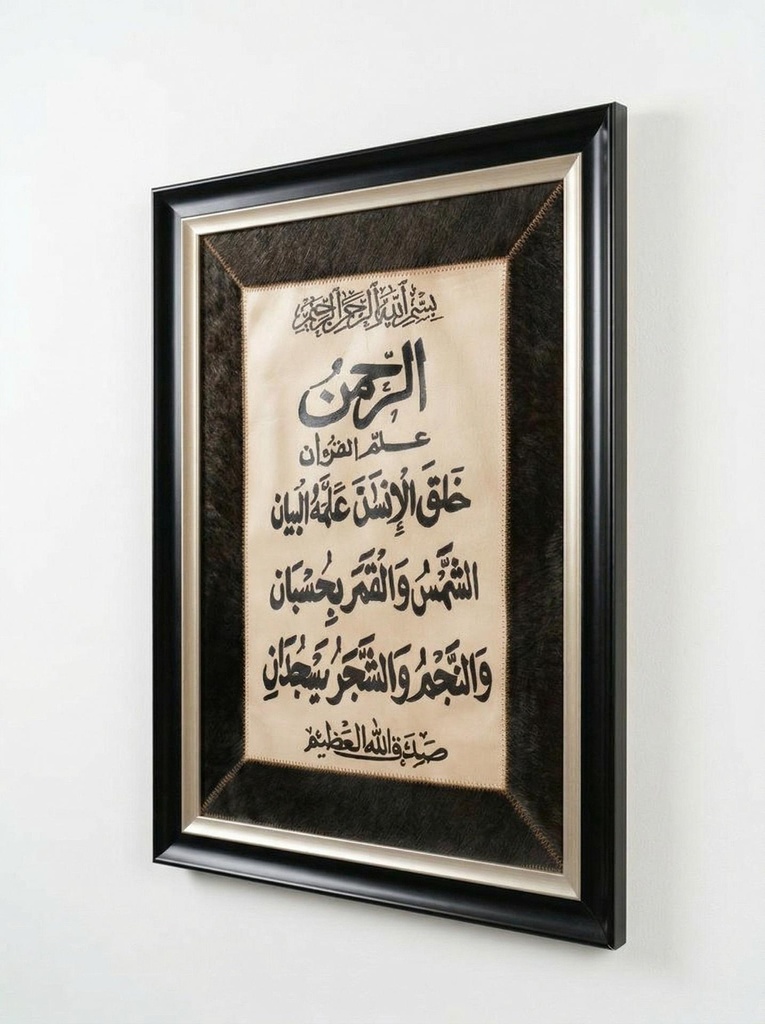 بسم الله الرحمن الرحيم
الرَّحمنُ
علّم القرءان
خَلقَ الْإِنسَٰنَ عَلَّمَهُ الْبَيان
الشَّمْسُ وَالْقَمَر بِحُسْبَان
وَالنَّجْمُ وَالشَّجَرُ يَسْجُدَانِ
صَدَق الله العَظيم